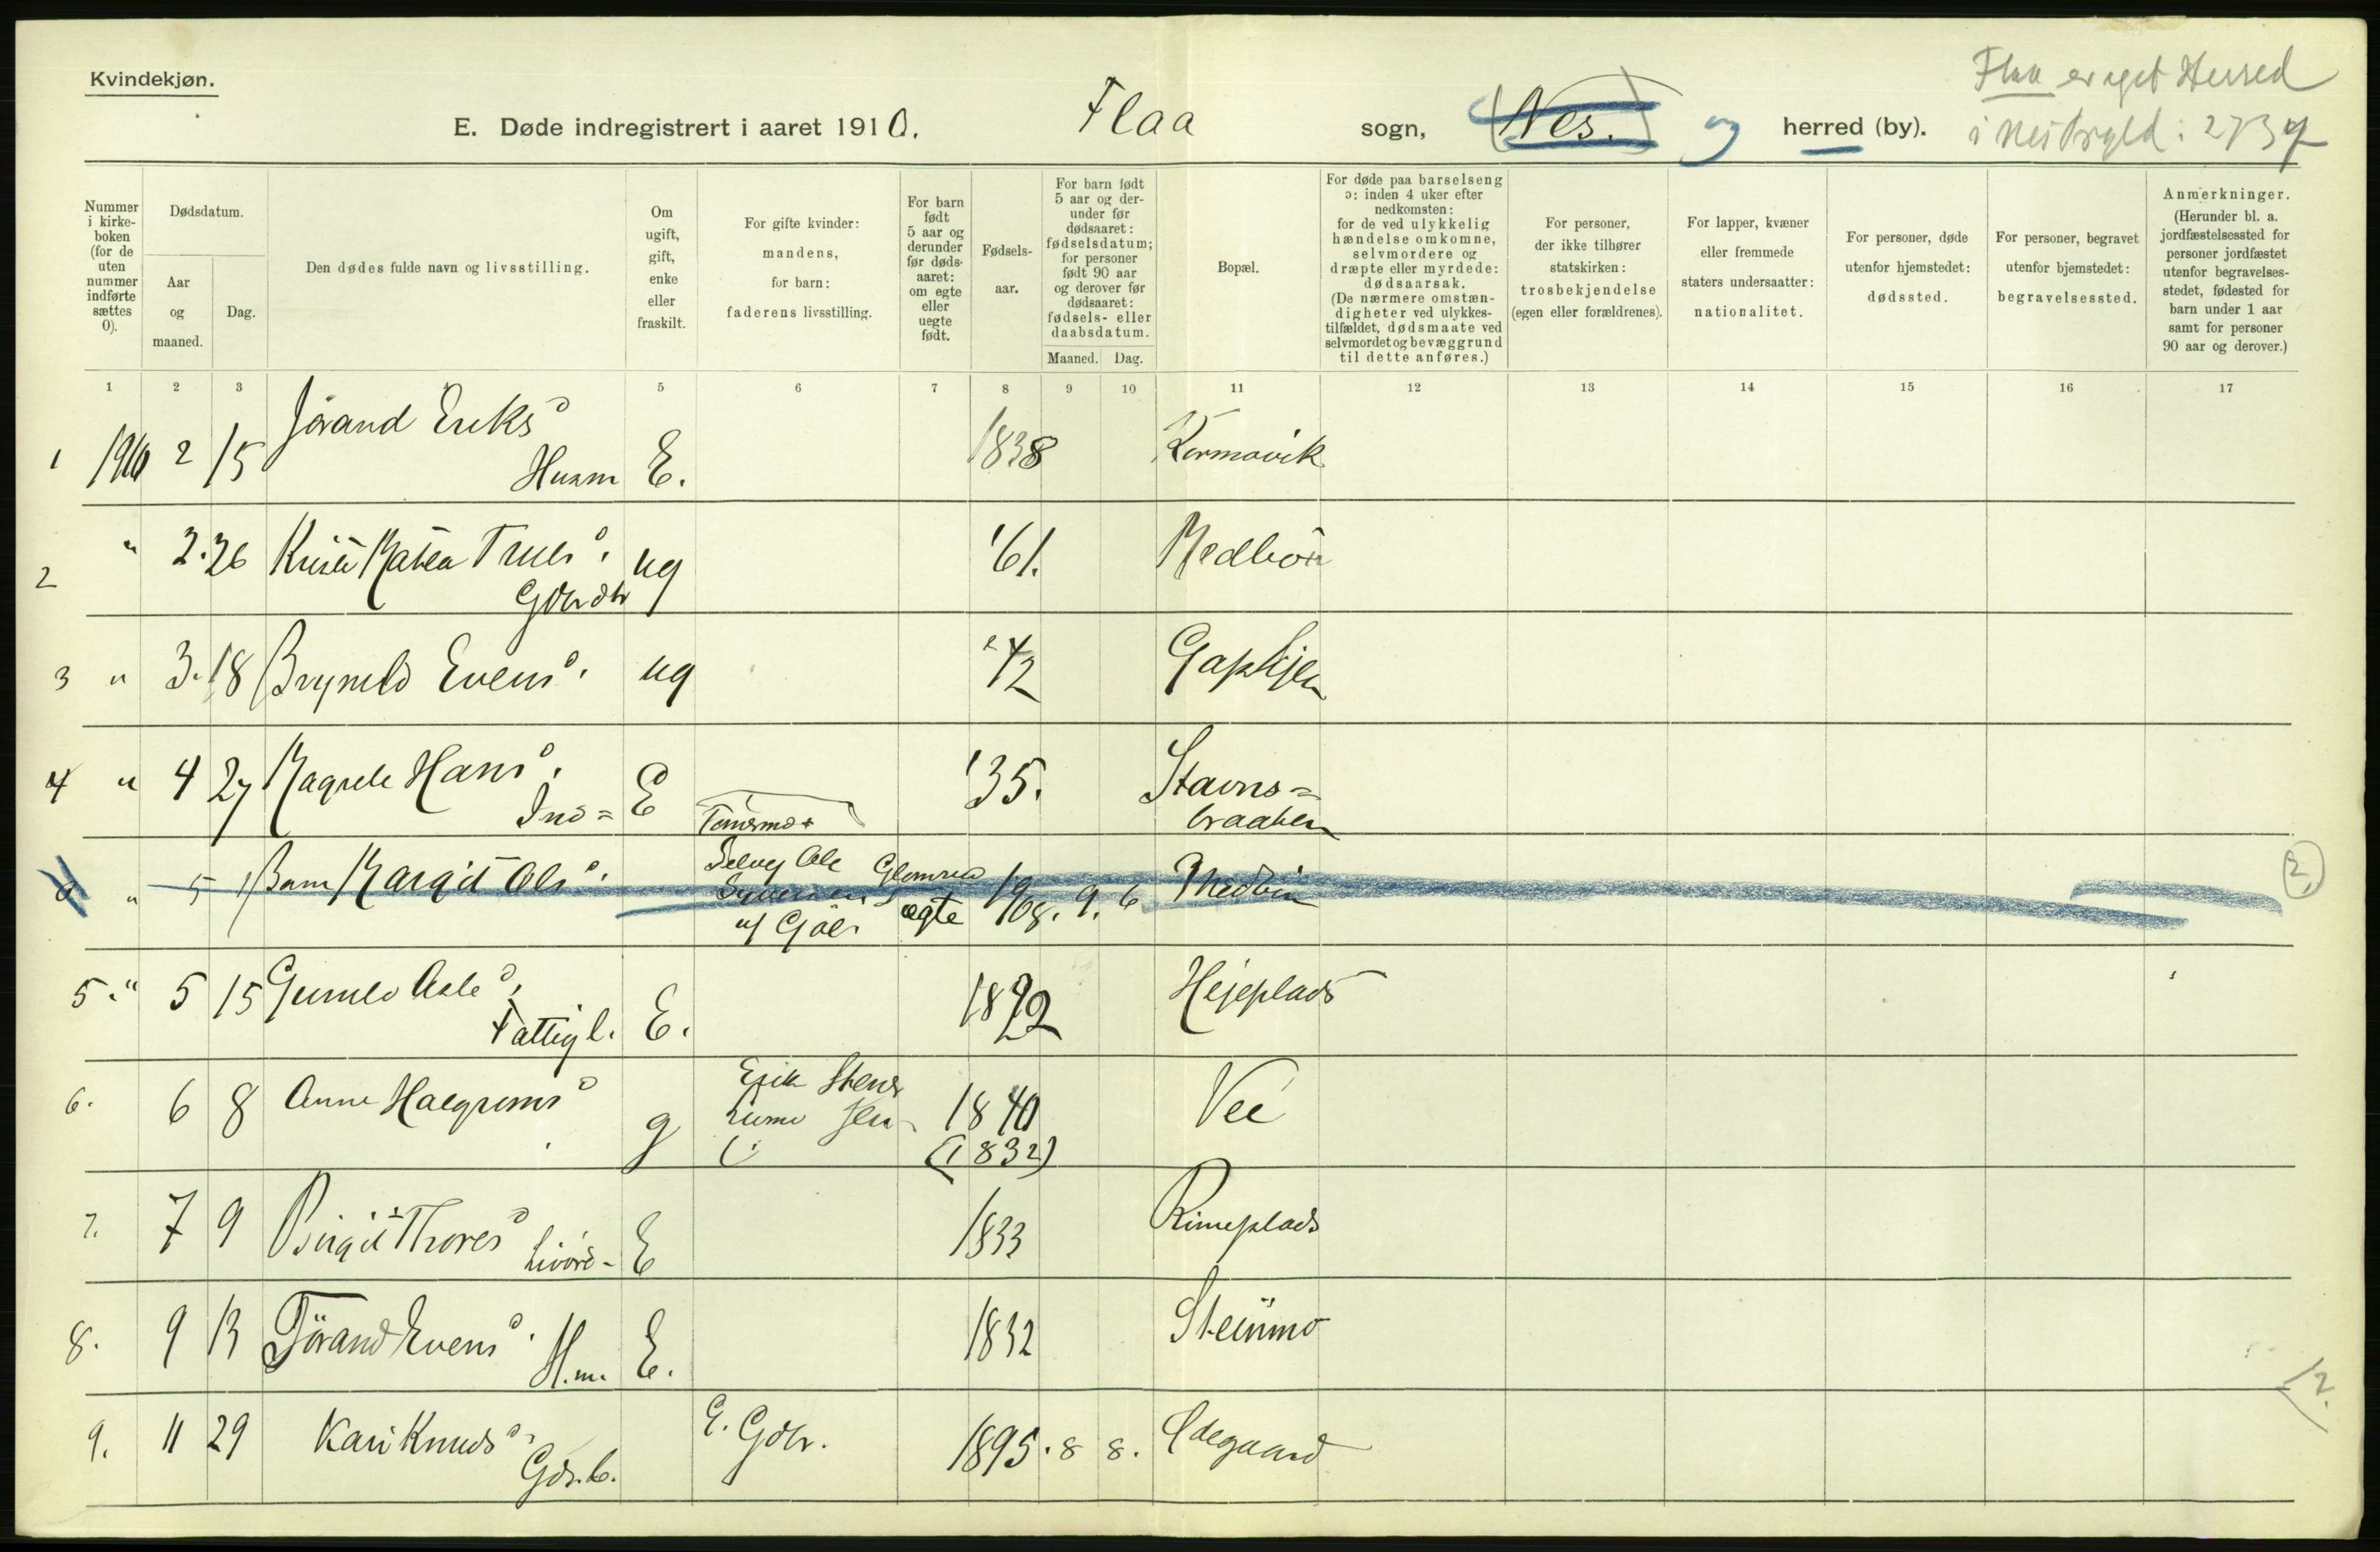 Kvindekjøn.
E. Døde indregistrert i aaret 1910. Flaa sogn, (Nes.) og herred (by).
Flaa er eget Herred
i
Nummer i kirkeboken (for de uten nummer indførte sættes 0).
Dødsdatum.
Aar og maaned.
Dag.
Den dødes fulde navn og livsstilling.
Om ugift, gift, enke eller fraskilt.
For gifte kvinder: mandens, for barn: faderens livsstilling.
For barn født 5 aar og derunder før dødsaaret: om egte eller uegte født.
Fødselsaar.
For barn født 5 aar og derunder før dødsaaret: fødselsdatum; for personer født 90 aar og derover før dødsaaret: fødsels- eller daabsdatum.
Maaned. Dag.
Bopæl.
For døde paa barselseng ɔ: inden 4 uker efter nedkomsten: for de ved ulykkelig hændelse omkomne, selvmordere og dræpte eller myrdede: dødsaarsak. (De nærmere omstændigheter ved ulykkestilfældet, dødsmaate ved selvmordet og bevæggrund til dette anføres.)
For personer, der ikke tilhører statskirken: trosbekjendelse (egen eller forældrenes).
For lapper, kvæner eller fremmede staters undersaatter: nationalitet.
For personer, døde utenfor hjemstedet: dødssted.
For personer, begravet utenfor bjemstedet: begravelsessted.
Anmerkninger. (Herunder bl. a. jordfæstelsessted for personer jordfæstet utenfor begravelsesstedet, fødested for barn under 1 aar samt for personer 90 aar og derover.)
1 2 3 5 6 7 8 9 10 11 12 13 14 15 16 17
1 1910 2 15 Jörand Eriksd
Husm E. 1838 Kormovik
2 " 2. 26 Trulsd. ug '61. Medbön
3 " 3. 18 Evensd. ug 42
4 " 4 27 Hansd. E '35. Stavns=
braaten
" 5 1 Barn Margit Olsd. egte 1908. 9. 6
5. " 5 15 Gunild Asled.
Fattigl. E. 1892 Hejeplads
6. 6 8 Anne Halgrimsd g Erik 1840 Vei
(1832)
7. 7 9 Birgit Thoresd E 1833 Rimeplads
8. 9 13 Jörand Evensd. H.m. E. 1832 Steinmo
9. 11 29 Kari Knudsd. Gdr.b. E. Gdbr. 1895. 8 8. Ødegaard